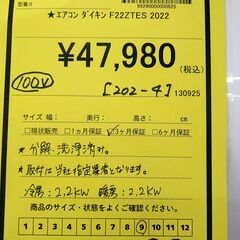 型番:0
9929000000625
★エアコン ダイキン F22ZTES 2022
¥47,980
(税込)
100V
[202-4] 130925
サイズ 幅: 奥行: 高さ: cm
□現状販売 □1ヵ月保証 ☑3ヶ月保証 □6ヶ月保証
★ 分解洗浄済み。
★取付は当社指定業者となります。
冷房:2.2kW 暖房:2.2kW
商品のサイズ・状態をよくご確認ください。
1 2 3 4 5 6 7 8 9 10 11 12